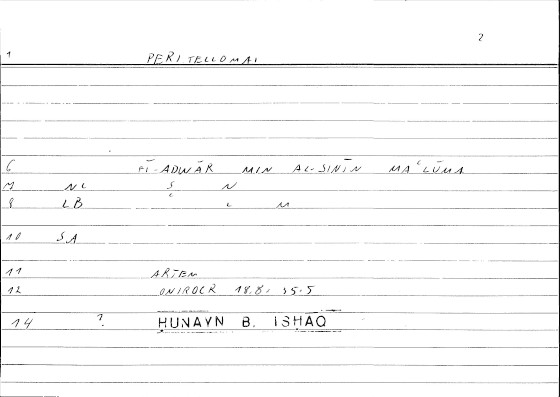 2
1 PERITELLOMAI
6 FĪ-ADWĀR MIN AL-SINĪN MAʿLŪMA
M NL S N
8 LB ʿ L M
10 SA
11 ARTEM
12 ONIROCR 18.8 - 35.5
14 ? ḤUNAYN B. ISḤAQ